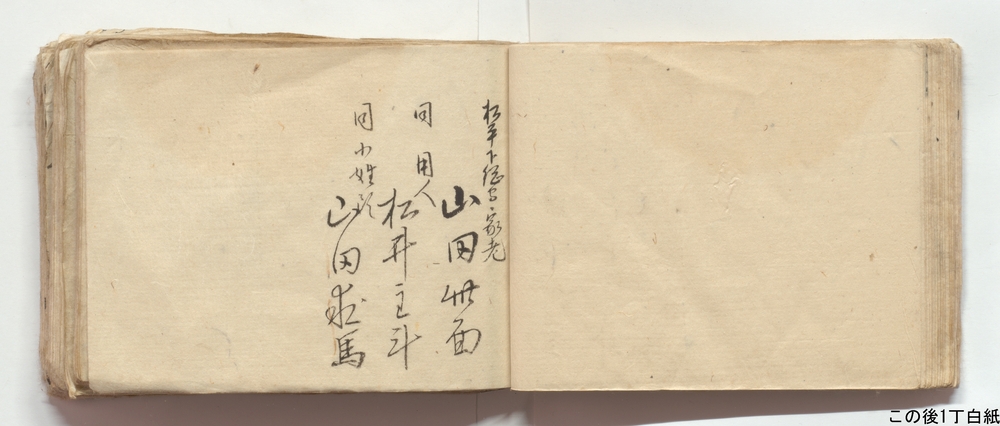 松平下総守家老
山田
同 用人
松井主斗
同小姓頭
山田求馬
この後1丁白紙